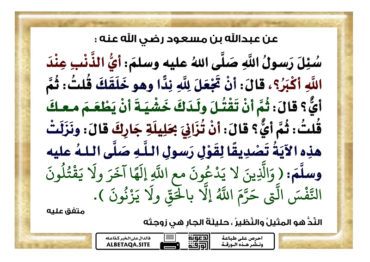 عن عبدالله بن مسعود رضي الله عنه :
سُئِلَ رَسولُ اللَّهِ صَلَّى اللهُ عليه وسلمَ: أيُّ الذَّنْبِ عِنْدَ
اللَّهِ أكْبَرُ؟، قالَ: أنْ تَجْعَلَ لِلَّهِ نِدًّا وهو خَلَقَكَ قُلتُ: ثُمَّ
أيٌّ؟ قالَ: ثُمَّ أنْ تَقْتُلَ ولَدَكَ خَشْيَةَ أنْ يَطْعَمَ معكَ
قُلتُ: ثُمَّ أيٌّ؟ قالَ: أنْ تُزَانِيَ بحَلِيلَةِ جَارِكَ قالَ: ونَزَلَتْ
هذِه الآيَةُ تَصْدِيقًا لِقَوْلِ رَسولِ اللَّهِ صَلَّى اللهُ عليه
وسلَّمَ: ( وَالَّذِينَ لَا يَدْعُونَ مع اللَّهِ إِلَهًا آخَرَ وَلَا يَقْتُلُونَ
النَّفْسَ الَّتي حَرَّمَ اللَّهُ إلَّا بالحَقِّ ولَا يَزْنُونَ ).
متفق عليه
النِّدُّ هو المثيلُ والنَّظيرُ ، حليلةَ الجارِ هي زوجتُه
احرص على طباعة
ونشر هذه الورقة
ALBETAQA.SITE